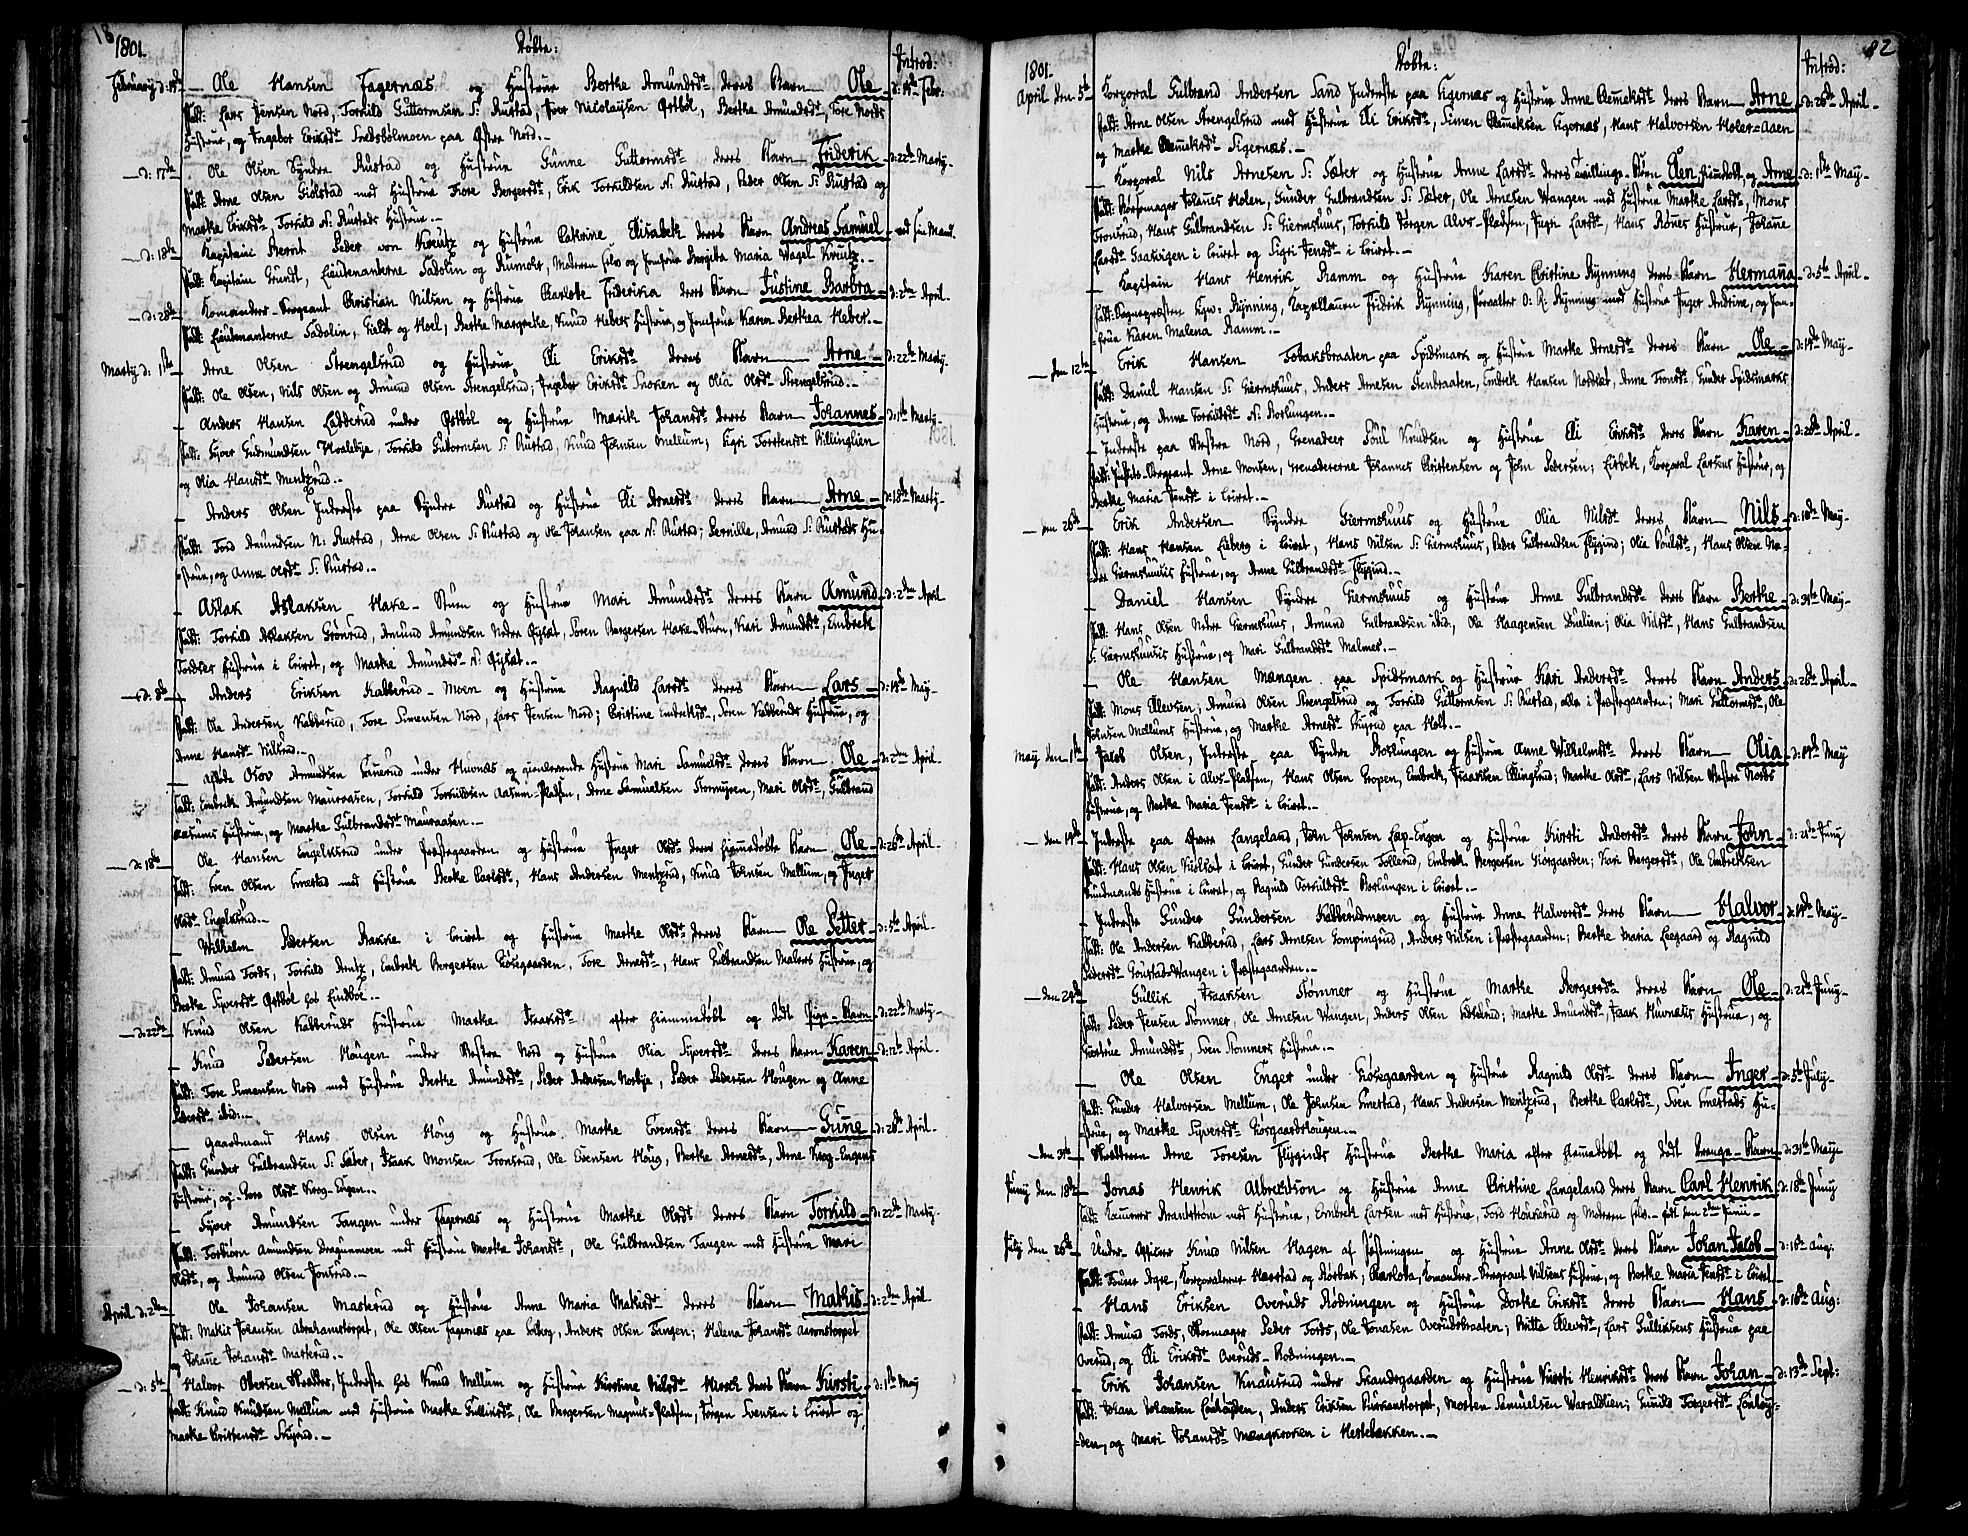 1801.
Døbte:
Introd:
February d: 15de Ole Hansen Fagernæs og Hustrue Berthe Amundsdt. deres Barn Ole d: 15de Febr:
Fadd: Lars Jensen Nord, Torkild Guttormsen S: Rustad, Iver Nicolaysen Østbøl, Berthe Amundsdt., Tore Nords
Hustrue, og Ingebor Eriksdt. paa Østre Nord.
d: 17de Ole Olsen Syndre Rustad og Hustrue Gunne Guttormsdt. deres Barn Friderik d: 22de Marty
Fadd: Arne Olsen Giølstad med Hustrue Tore Bergersdt., Erik Torkildsen N: Rustad, Peder Olsen S: Rustad og
Marthe Eriksdt., Torkild N: Rustads Hustrue.
d: 18de Kapitain Bernt Peder von Kreutz og Hustrue Cathrine Elisabeth deres Barn Andreas Samuel
Fadd: Kapitain Grundt, Lieutenanterne Sadolin og Rumohr, Moderen selv og Jomfrue Bergitte Maria Wagel Kreutz.
d: 28de Komandeer-Sergeant Christian Nilsen og Hustrue Charlotte Friderika deres Barn Justine Barbra d: 2den April
Fadd: Lieutenanterne Sadolin, Gieldt og Hoel, Berthe Margrethe, Knud Hebers Hustrue, og Jomfrue Karen Berthea Heber.
Marty d: 1ste Arne Olsen Strengelsrud og Hustrue Eli Eriksdt. deres Barn Arne d: 22de Marty
Fadd: Ole Olsen, Nils Olsen og Amund Olsen Strengelsrud; Ingebor Eriksdt. Snoken og Olia Olsdt. Strengelsrud.
Anders Hansen Ladderud under Østbøl og Hustrue Marith Johansdt. deres Barn Johannes d: 1ste Marty
Fadd: Syver Gudmundsen Hvalebye, Torkild Guttormsen S: Rustad, Knud Johnsen Mellum; Sigri Torstensdt. Billinglien
og Olia Hansdt. Mentzrud.
Anders Olsen Inderste paa Syndre Rustad og Hustrue Eli Arnesdt. deres Barn Arne d: 18de Marty
Fadd: Tord Amundsen N: Rustad, Arne Olsen S: Rustad og Ole Johansen paa N: Rustad; Pernille, Amund S: Rustads Hu-
strue, og Anne Olsdt. S: Rustad.
Aslak Aslaksen Hake-Stuen og Hustrue Mari Amundsdt. deres Barn Amund d: 2den April
Fadd: Torkild Aslaksen Grønrud, Amund Amundsen Nedre Øysæt, Søren Bergersen Hake-Stuen, Kari Amundsdt., Embreth
Tordsens Hustrue i Leiret, og Marthe Amundsdt. N: Øysæt.
d: 8de Anders Eriksen Kabberud-Moen og Hustrue Ragnild Larsdt. deres Barn Lars d: 14de May
Fadd: Ole Andersen Kabberud, Tore Simensen Nord, Lars Jensen Nord; Christine Embrethsdt., Søren Kabberuds Hustrue, og
Anne Hansdt. Nilsrud.
afdøde Osov Amundsen under Huvnæs og gienlevende Hustrue Mari Samuelsdt. deres Barn Ole d: 2den April
Fadd: Embreth Amundsen Mauraasen, Torkild Torkildsen Aasum-Platsen, Arne Samuelsen Stormyren, Mari Olsdt., Gulbrand
Aasums Hustrue, og Marthe Gulbrandsdt. Mauraasen.
d: 18de Ole Hansen Engelksrud under Præstegaarden og Hustrue Inger Olsdt. deres hiemmedøbte Barn Ole d: 26de April
Fadd: Even Olsen Smestad med Hustrue Berthe Carlsdt., Hans Andersen Mentzrud, Knud Johnsen Mellum, og Inger
Olsdt. Engelksrud.
Wilhelm Pedersen Bakke i Leiret og Hustrue Marthe Olsdt. deres Barn Ole Petter d: 5te April
Fadd: Amund Tords, Torkild Arntz, Embreth Bergersen Gorsegaarden, Tore Arnesdt., Hans Gulbrandsen Malers Hustrue, og
Berthe Syversdt. Østbøl hos Lindboe.
d: 22de Knud Olsen Kabberuds Hustrue Marthe Isaaksdt. efter hiemmedøbt og dødt Pige-Barn d: 22de Marty
Knud Pedersen Hougen under Vestre Nord og Hustrue Olia Syversdt. deres Barn Karen d: 12te April
Fadd: Tore Simensen Nord med Hustrue Berthe Amundsdt., Peder Andersen Norbye, Peder Pedersen Hougen og Anne
Pedersdt. ibid.
Gaardmand Hans Olsen Houg og Hustrue Marthe Evensdt. deres Barn Gunne d: 26de April
Fadd: Gunder Gulbrandsen S: Sæter, Isaak Monsen Tronsrud, Ole Evensen Houg, Berthe Arnesdt., Arne Krog-Engens
Hustrue, og Tore Olsdt. Krog-Engen.
Syver Amundsen Tangen under Fagernæs og Hustrue Marthe Olsdt. deres Barn Torkild d: 22de Marty
Fadd: Torbiørn Amundsen Dragunmoen med Hustrue Marthe Johansdt., Ole Gulbrandsen Tangen med Hustrue Mari
Olsdt., og Amund Olsen Jonsrud.
April d: 2den Ole Johansen Masterud og Hustrue Anne Maria Mathisdt. deres Barn Mathis d: 2den April
Fadd: Mathis Johansen Abrahamstorpet, Ole Olsen Fagernæs paa Solberg, Anders Olsen Tangen; Helena Johansdt. Aaronstorpet
og Johanne Johansdt. Masterud.
d: 5te Halvor Ottersen Skrædder, Inderste hos Knud Mellum og Hustrue Kirstine Nilsdt. Hirsch deres Barn Kirsti d: 1ste May
Fadd: Knud Knudsen Mellum med Hustrue Marthe Gulliksdt., Ole Bergersen Magnus-Platsen, Jørgen Svensen i Leiret og
Marthe Christensdt. Skyrud.
82
1801.
Døbte:
Introd:
April den 5te Korporal Gulbrand Andersen Sand Inderste paa Sigernæs og Hustrue Anne Clemetsdt. deres Barn Arne d: 26de April
Fadd: Arne Olsen Strengelsrud med Hustrue Eli Eriksdt., Simen Clemetsen Sigernæs, Hans Halvorsen Holer-Aaen
og Marthe Clemetsdt. Sigernæs.
Korporal Nils Arnesen S: Sæter og Hustrue Anne Larsdt. deres tvillinge-Børn Elen hiemdøbt, og Arne d: 1ste May
Fadd: Skomager Johannes Holen, Gunder Gulbrandsen S: Sæter, Ole Arnesen Wangen med Hustrue Marthe Larsdt., Mons
Tronsrud, Hans Gulbrandsen S: Giermshuus, Torkild Jørgen Alvs-Platsen, Jngri Larsdt., Hans Hustrue, Johane
Larsdt. i Leiret og Sigri Jensdt. i Leiret.
Kapitain Hans Henrik Ramm og Hustrue Karen Christine Rynning deres Barn Hermanna d: 5te April
Fadd: Sognepræsten Hgnr: Rynning, Kapellanen Fridrik Rynning, Forvalter O: R: Rynning med Hustrue Inger Andrine, og Jom-
frue Karen Malena Ramm.
den 12te Erik Hansen Tobaksbraaten paa Spidsmark og Hustrue Marthe Arnesdt. deres Barn Ole d: 14de May
Fadd: Daniel Hansen S: Giermshuus, Anders Arnesen Stenbraaten, Embreth Hansen Nordset, Anne Tronsdt., Gunder Spidsmarks
Hustrue, og Anne Torkildsdt. N: Roslungen.
Inderste paa Vestre Nord, Grenadeer Poul Knudsen og Hustrue Eli Eriksdt. deres Barn Karen d: 26de April
Fadd: Arne Monsen, Grenadererne Johannes Christensen og John Pedersen; Lisbeth, Korporal Larsens Hustrue, og
Berthe Maria Jensdt. i Leiret.
den 26de Erik Andersen Syndre Giermshuus og Hustrue Olia Nilsdt. deres Barn Nils d: 10de May
Fadd: Hans Hansen Lieberg i Leiret, Hans Nilsen S: Giermshuus, Peder Gulbrandsen Flygind; Olia Poulsdt., Hans Olsen Ne-
dre Giermshuuses Hustrue, og Anne Gulbrandsdt. Flygind.
Daniel Hansen Syndre Giermshuus og Hustrue Anne Gulbrandsdt. deres Barn Berthe d: 31te May
Fadd: Hans Olsen Nedre Giermshuus, Amund Gulbrandsen ibid., Ole Haagensen Duelien; Olia Nilsdt., Hans Gulbrandsen
S: Giermshuuses Hustrue, og Mari Gulbrandsdt. Malmer.
Ole Hansen Mangen paa Spidsmark og Hustrue Kari Andersdt. deres Barn Anders d: 26de April
Fadd: Mons Ellevsen, Amund Olsen Strengelsrud og Torkild Guttormsen S: Rustad, alle i Præstegaarden; Mari Guttormsdt., Ole
Johnsen Mellums Hustrue, og Marthe Arnesdt. Skyrud paa Holt.
May den 1ste Jakob Olsen, Inderste paa Syndre Roslungen og Hustrue Anne Wilhelmsdt. deres Barn Olia d: 14de May
Fadd: Anders Olsen i Alvs-Platsen, Hans Olsen Gropen, Embreth Isaaksen Ellingsrud; Marthe Olsdt., Lars Nilsen Vestre Nords
Hustrue, og Berthe Maria Jensdt. i Leiret.
den 14de Inderste paa Øvre Langeland, John Johnsen Lap-Engen og Hustrue Kirsti Andersdt. deres Barn John d: 21de Juny
Fadd: Hans Olsen Kiølset i Leiret, Gunder Gundersen Tollerud, Embreth Bergersen Gorgaarden; Kari Bergersdt., Ole Embrethsen
Sundmands Hustrue i Leiret, og Ragnild Torkildsdt. Roslungen i Leiret.
Inderste Gunder Gundersen Kabberudmoen og Hustrue Anne Halvorsdt. deres Barn Halvor d: 14de May
Fadd: Ole Andersen Kabberud, Lars Arnesen Gompingrud, Anders Nilsen i Præstegaarden; Berthe Maria Leegaard og Ragnild
Pedersdt. Goustad-Wangen i Præstegaarden.
den 24de Gullik Isaaksen Stømner og Hustrue Marthe Bergersdt. deres Barn Ole d: 21de Juny
Fadd: Peder Jensen Stømner, Ole Arnesen Wangen, Anders Olsen; Marthe Amundsdt., Isaak Huvnæses Hustrue, og
Amundsdt., Sven Stomners Hustrue.
Ole Olsen Enger under Gorsegaarden og Hustrue Ragnild Olsdt. deres Barn Inger d: 5te July
Fadd: Gunder Halvorsen Mellum, Ole Johnsen Smestad, Hans Andersen Mentzrud, Berthe Carlsdt., Sven Smestads Hu-
strue, og Marthe Syversdt. Gorgaardshougen.
den 31te Skredderen Arne Toresen Flyginds Hustrue Berthe Maria efter hiemmedøbt og dødt Drenge-Barn d: 31te May
Juny den 18de Jonas Henrik Albrechtson og Hustrue Anne Christine Langeland deres Barn Carl Henrik d: 18de Juny
Fadd: Kammerer Brantstrøm med Hustrue, Embreth Larsen med Hustrue, Tord Houkerud og Moderen selv. født den 2den Junii
July den 26de Under-Officer Knud Nilsen Hagen af Fæstningen og Hustrue Anne Olsdt. deres Barn Johan Jakob d: 16de Aug:
Fadd: Furer Agre, Korporalerne Harstad og Norbak, Charlotta, Komandeer-Sergeant Nilsens Hustrue, og Berthe Maria Jensdt. i Leiret
Hans Eriksen Overuds Rødningen og Hustrue Dorthe Eriksdt. deres Barn Hans d: 16de Aug:
Fadd: Amund Tords, Skomager Peder Tords, Ole Jonasen Overudsbraaten; Britta Ellevsdt., Lars Gulliksens Hustrue paa
Overud, og Eli Eriksdt. Overuds-Rødningen.
Erik Johansen Knausrud under Strandsgaarden og Hustrue Kirsti Henriksdt. deres Barn Johan d: 13de Sept:
Fadd: Johan Johansen Lønhøyden, Anders Eriksen Purkanstorpet, Morten Samuelsen Varaldlien; Gunild Torgersdt. Lønhøy-
den, og Mari Johansdt. Mangkroken i Hestebakken.